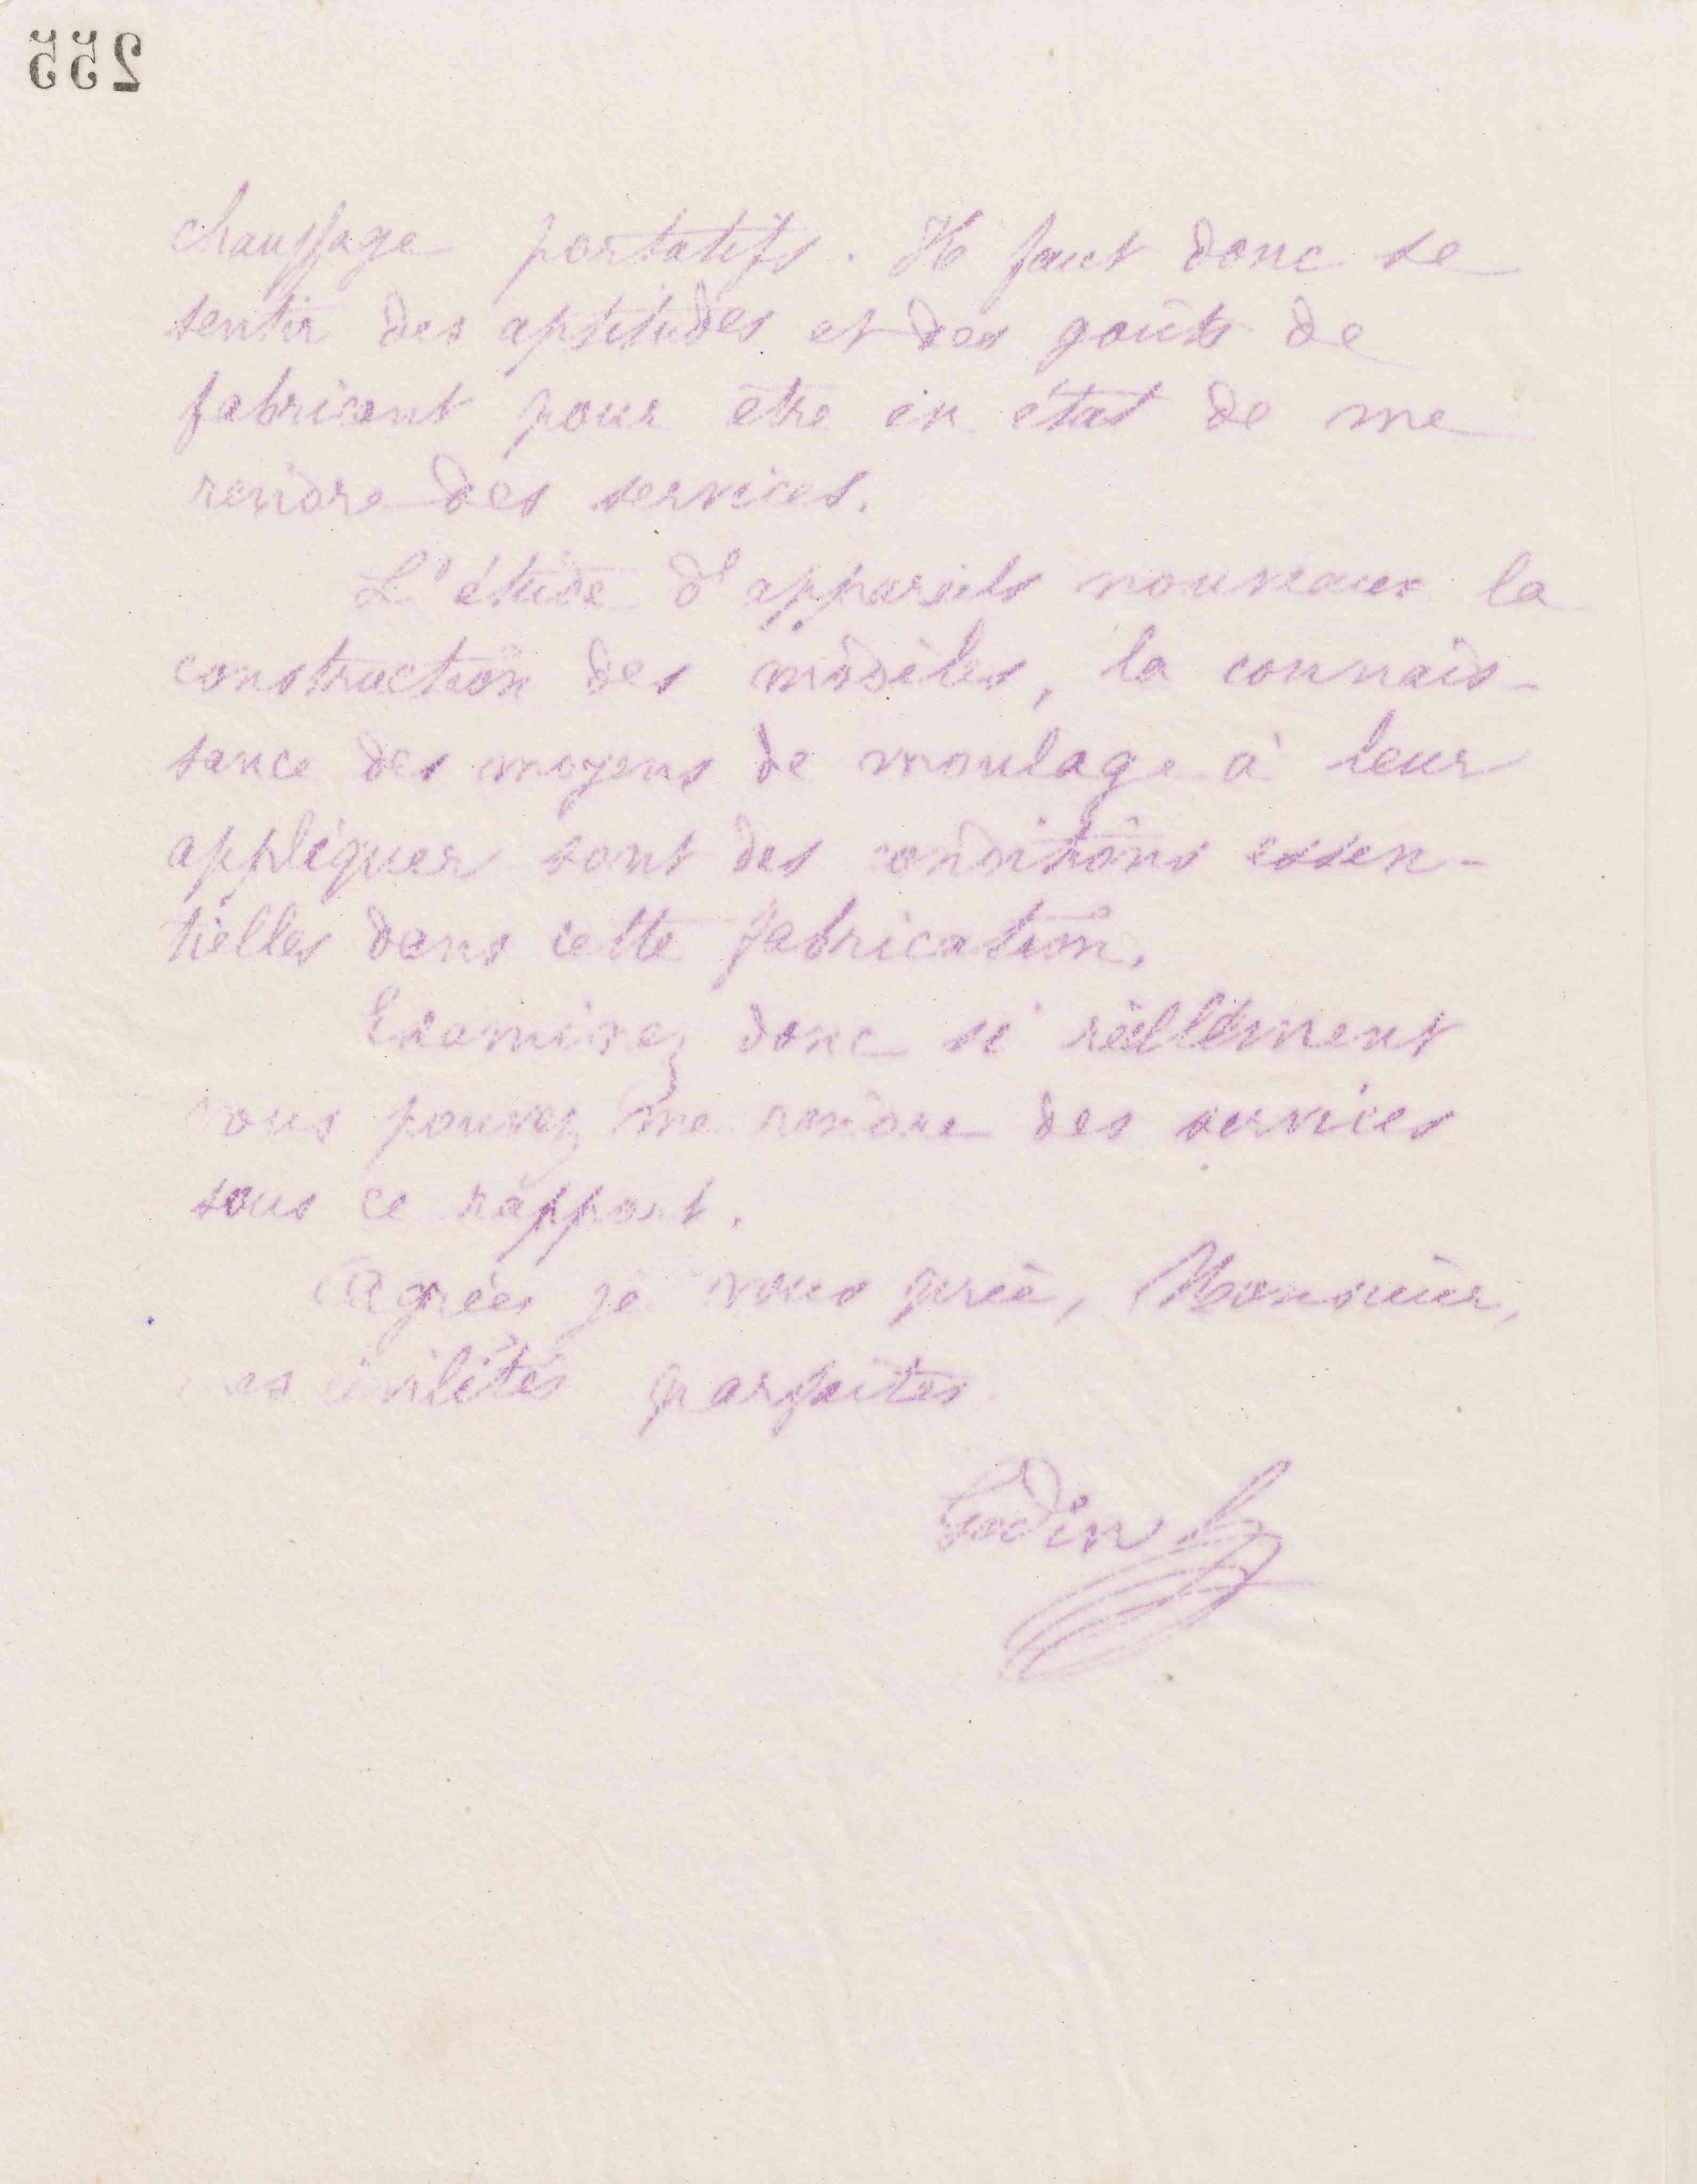 255
chauffage portatifs. Il faut donc se
sentir des aptitudes et des goûts de
fabricant pour être en état de me
rendre des services.
L'étude d'appareils nouveaux la
construction des modèles, la connais-
sance des moyens de moulage à leur
appliquer sont des conditions essen-
tielles dans cette fabrication.
Examinez donc si réellement
vous pouvez me rendre des services
sous ce rapport.
Agréez je vous prie, Monsieur,
mes civilités parfaites
Godin